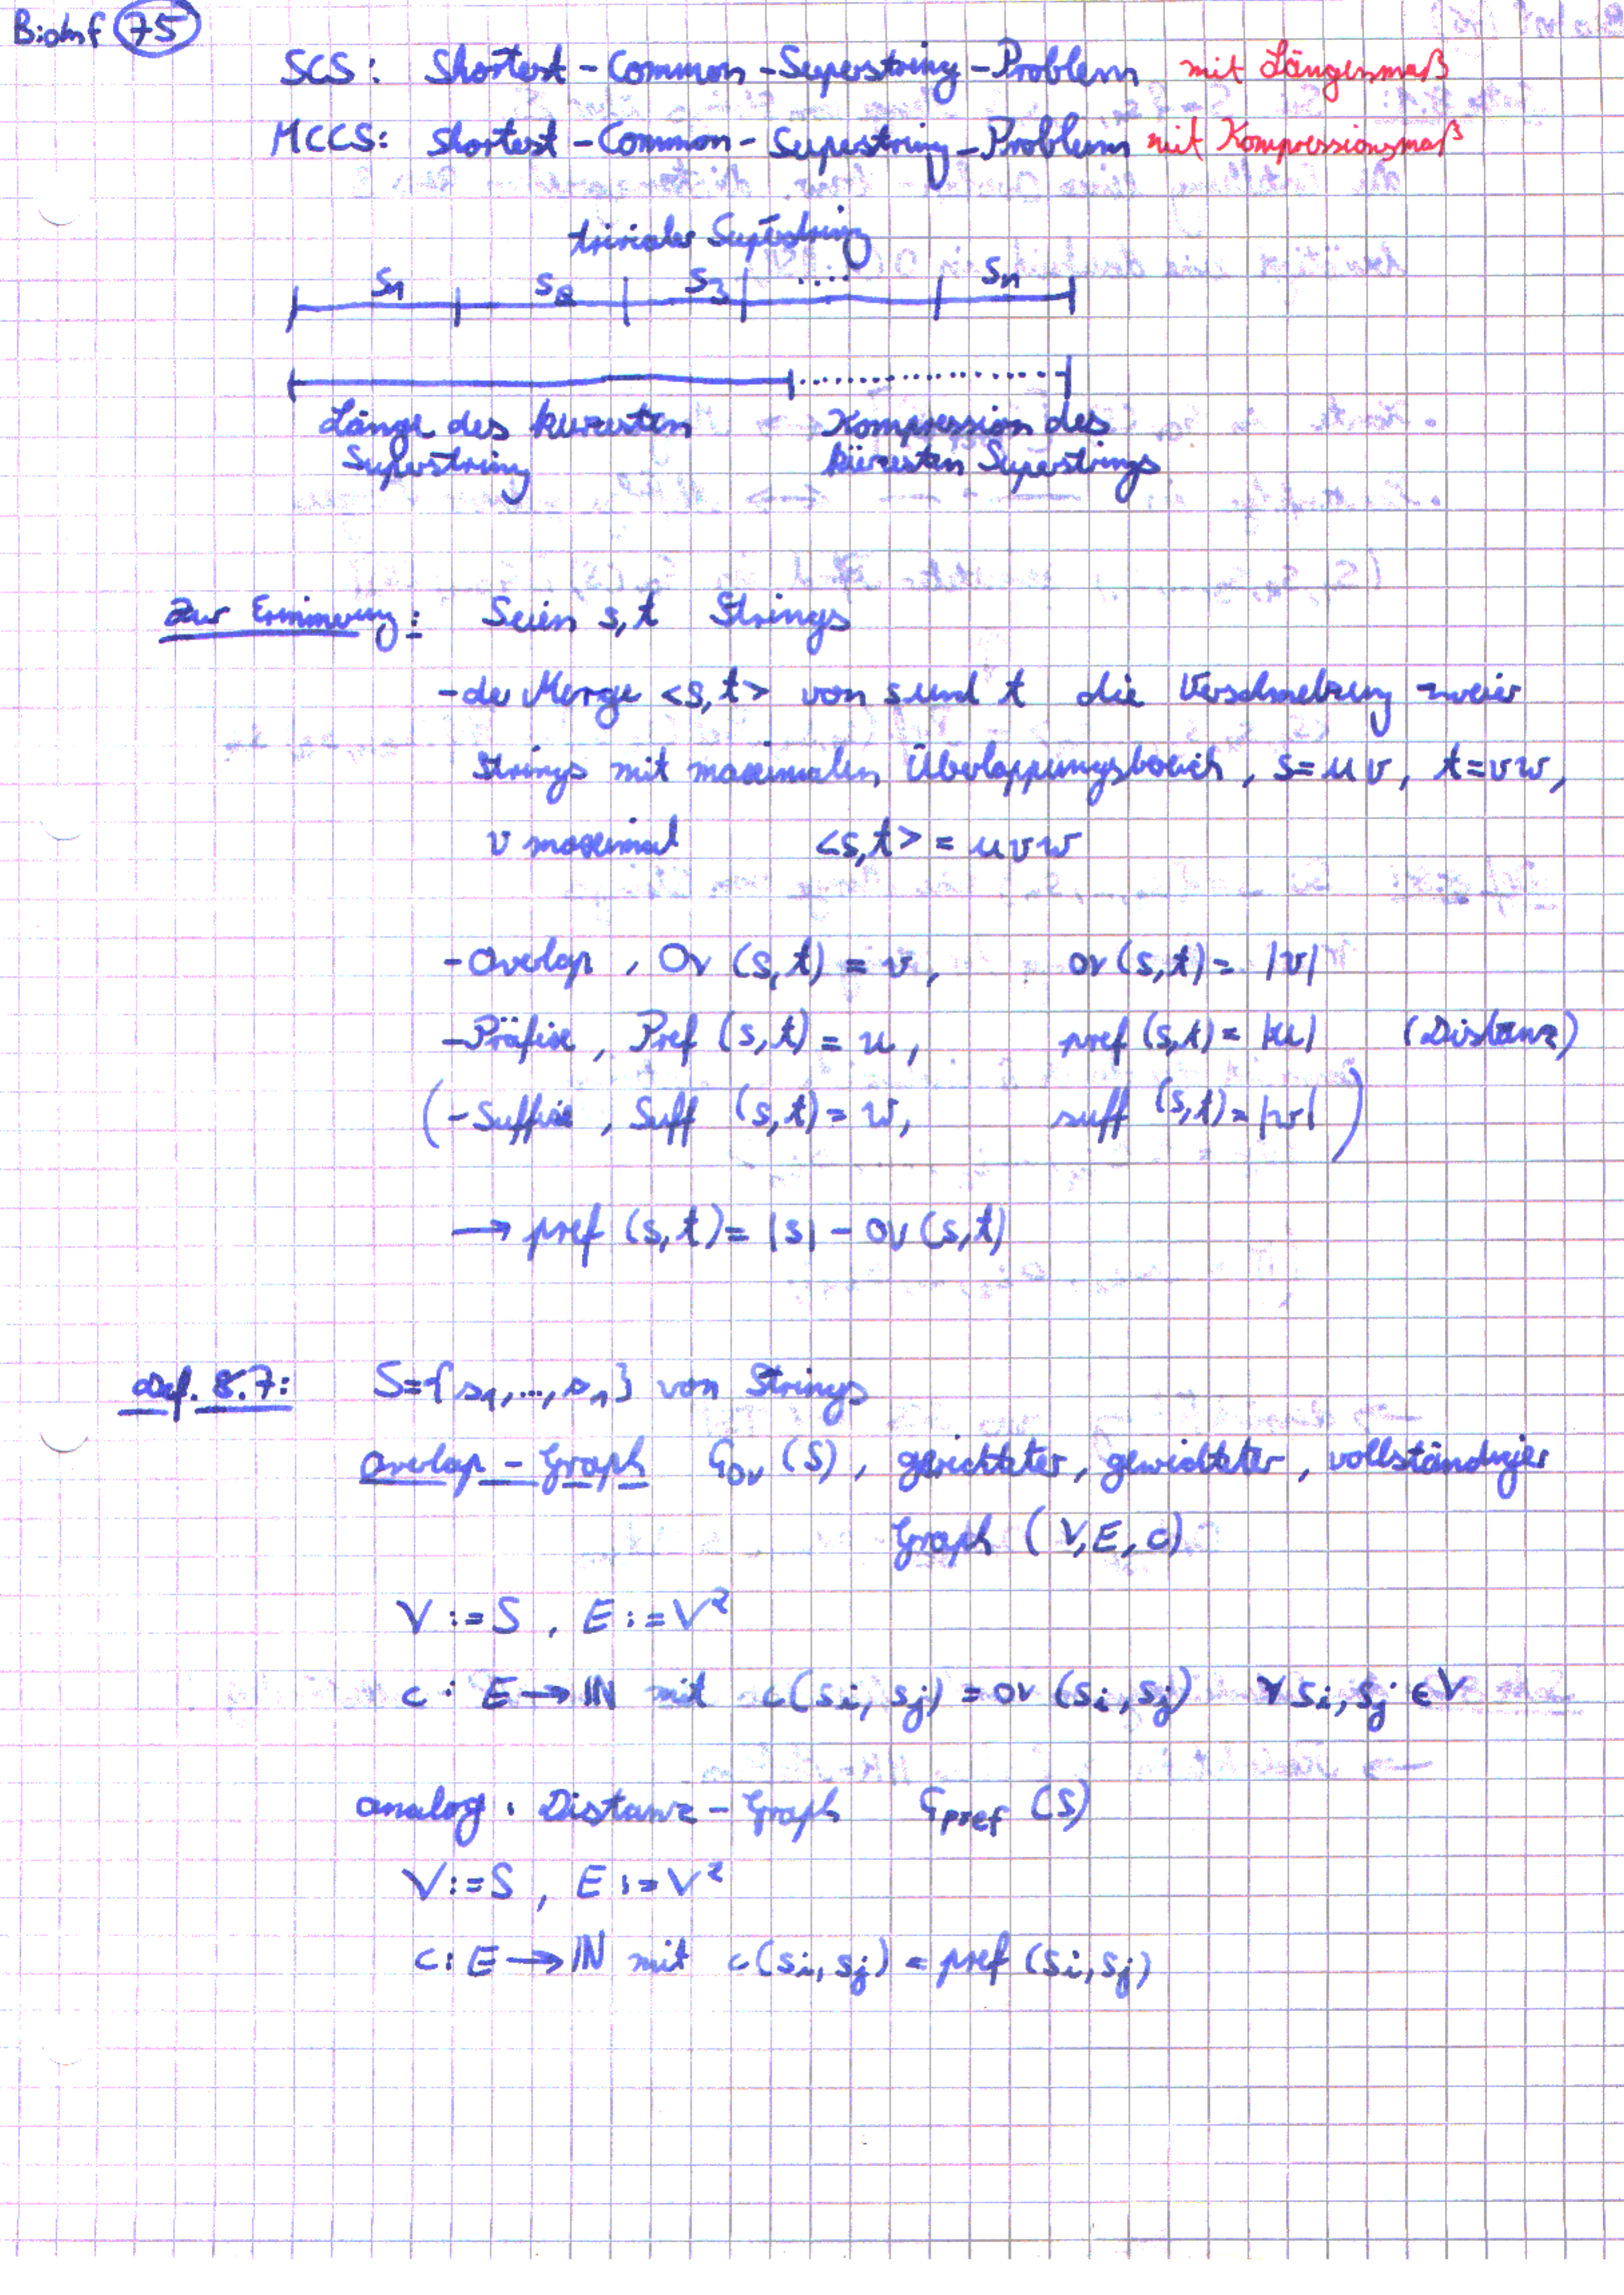 BioInf 75
SCS: Shortest-Common-Superstring-Problem mit Längenmaß
MCCS: Shortest-Common-Superstring-Problem mit Kompressionsmaß
trivialer Superstring
S1 S2 S3 .... Sn
Länge des kürzesten Kompression des
Superstring kürzesten Superstrings
Zur Erinnerung: Seien s,t Strings
- der Merge <s,t> von s und t die Verschmelzung zweier
Strings mit maximalen Überlappungsbereich, s=uv, t=vw,
v maximal <s,t> = uvw
- Overlap, Ov (s,t) = v, ov (s,t) = |v|
- Präfix, Pref (s,t) = u, pref (s,t) = |u| (Distanz)
(- Suffix, Suff (s,t) = w, suff (s,t) = |w|)
→ pref (s,t) = |s| - ov (s,t)
Def. 8.7: S={s1,...,sn} von Strings
overlap-Graph Gov (S), gerichteter, gewichteter, vollständiger
Graph (V,E,c)
V:=S, E:=V²
c: E→ℕ mit c(si,sj) = ov (si,sj) ∀ si,sj ∈V
analog: Distanz-Graph Gpref (S)
V:=S, E:=V²
c: E→ℕ mit c(si,sj) = pref (si,sj)